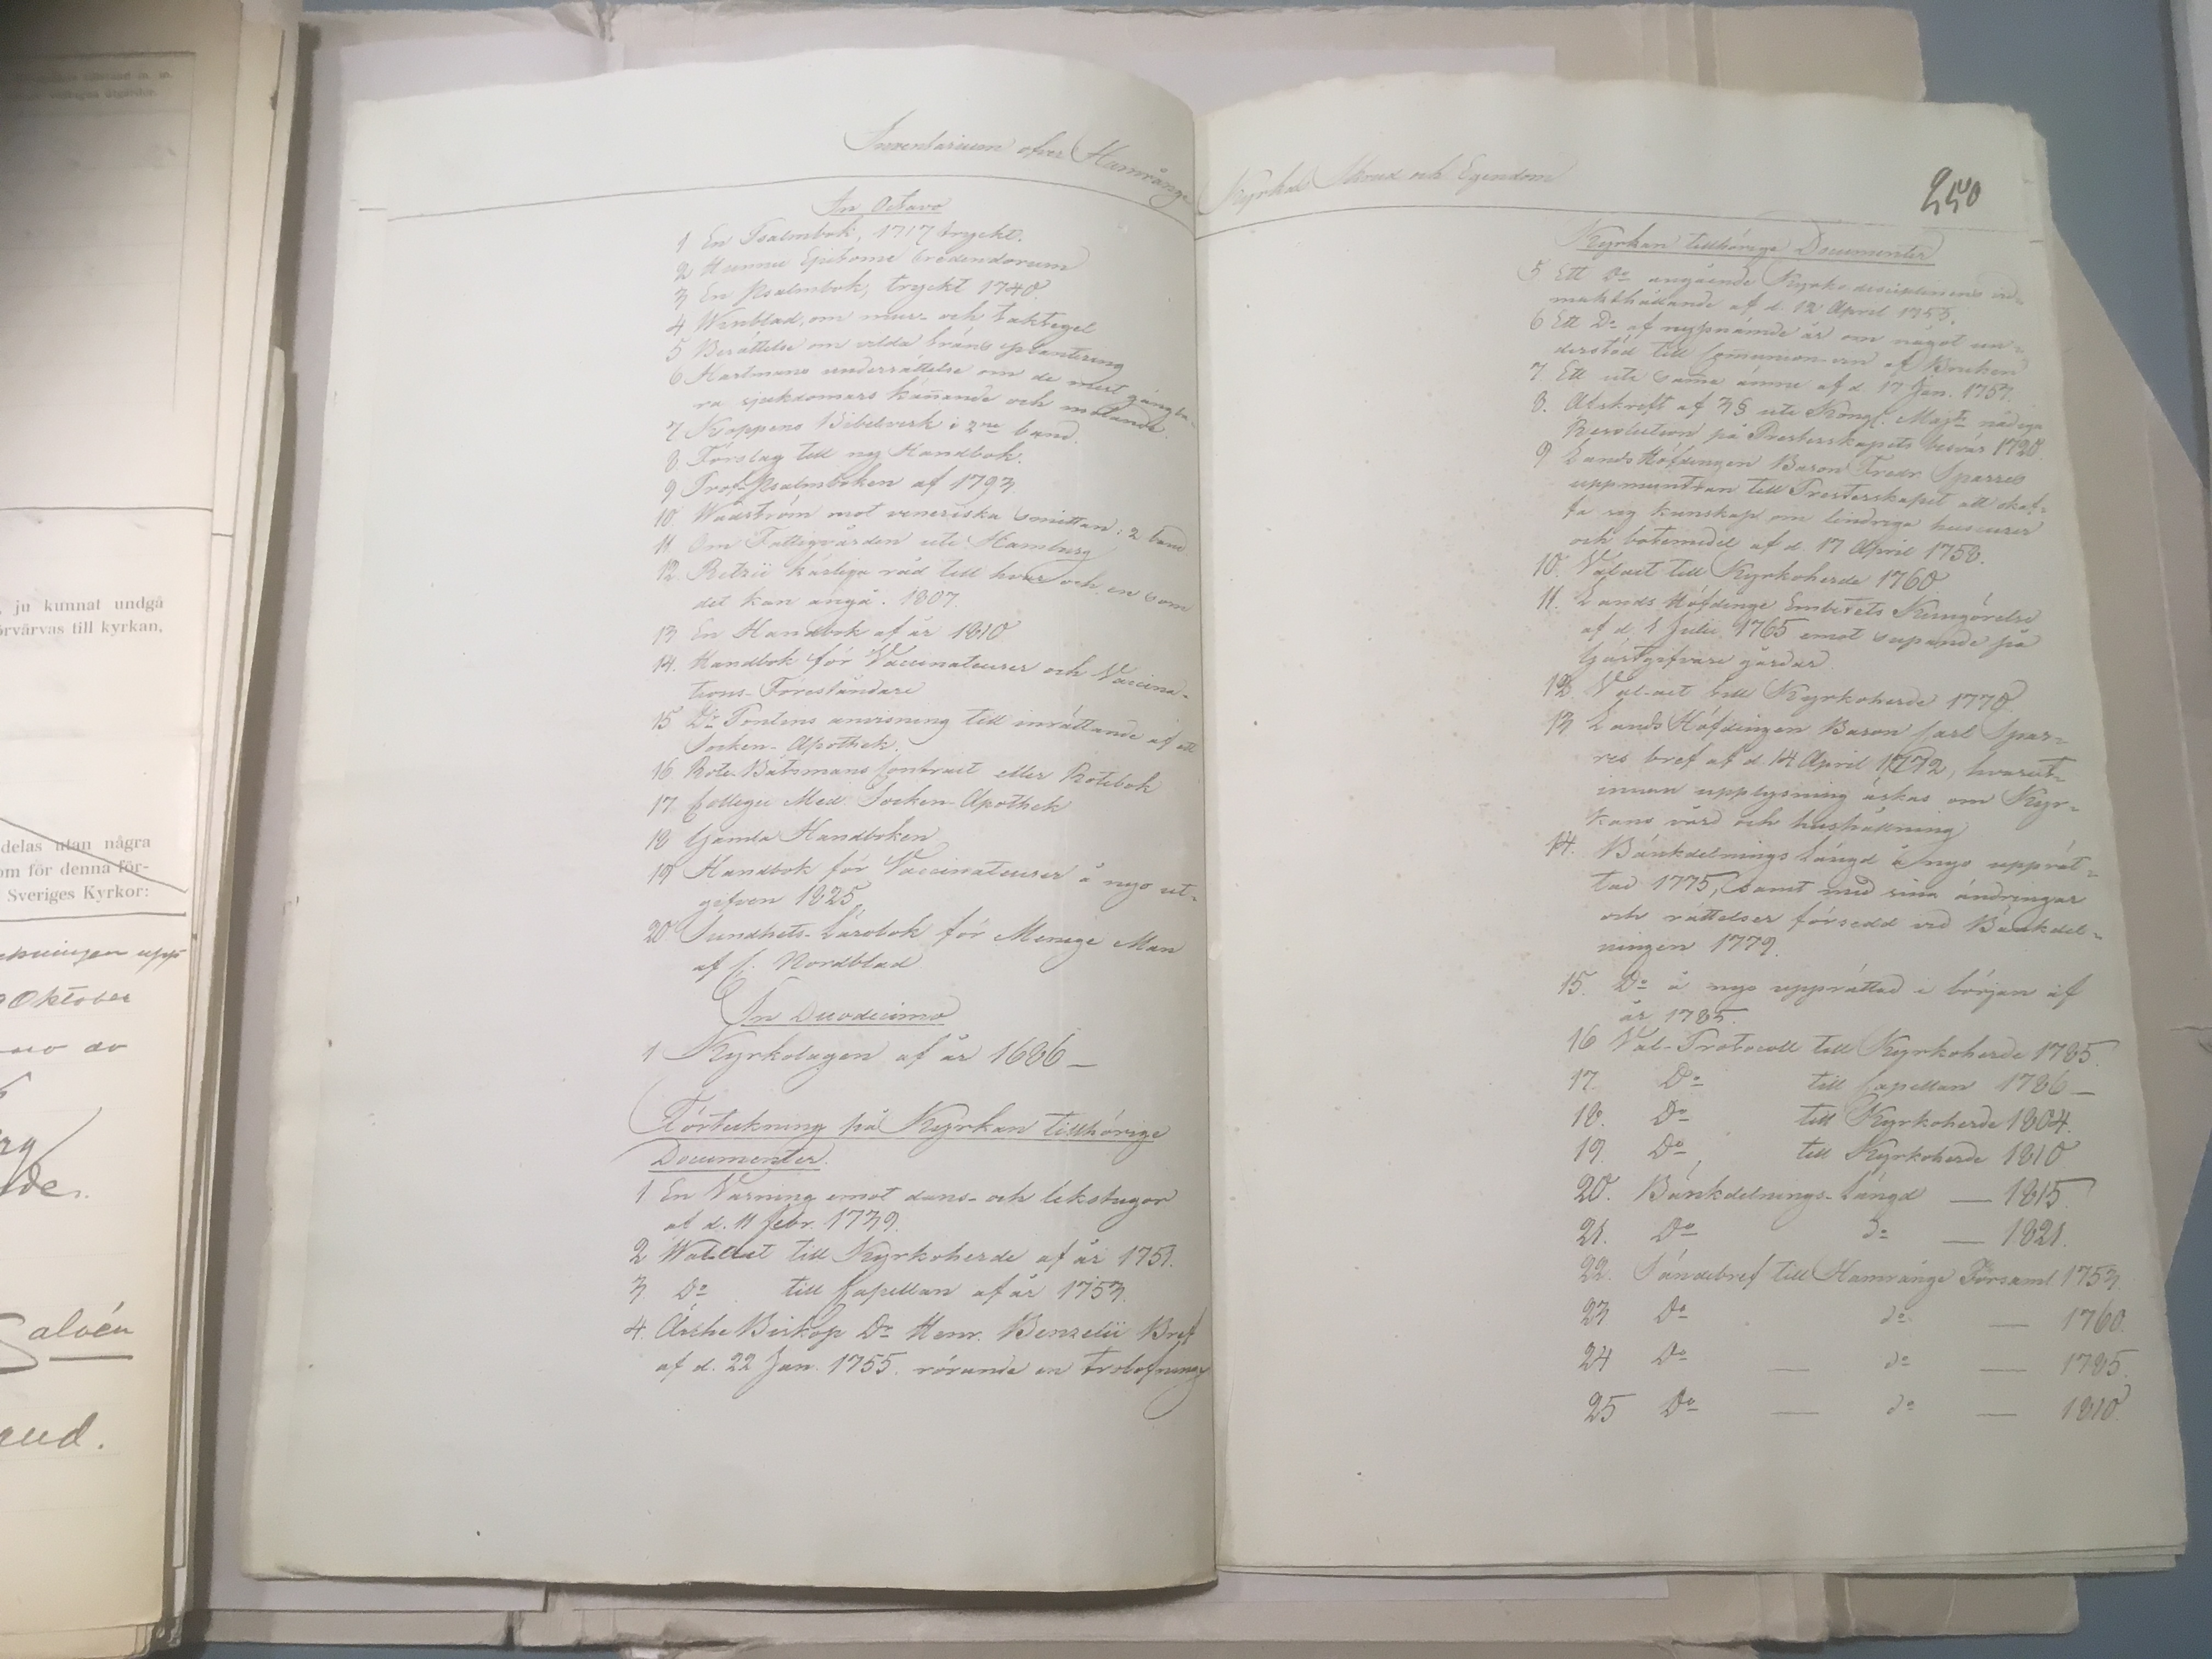 Inventarium öfver Hamrånge Kyrkas Skrud och Egendom
In Octavo
1 En Psalmbok, 1717 tryckt.
2 Hunnii Epitome Credendorum
3 En Psalmbok, tryckt 1740.
4 Wynblad, om mur- och taktegel
5 Berättelse om vilda träns plantering
6 Hartmans underrättelse om de mest gångba-
ra sjukdomars kännande och
7 Koppens Bibelverk i 2ne band.
8 Förslag till ny Handbok.
9 Prof-Psalmboken af 1793.
10. Wadström mot veneriska smittan: 2 band
11. Om Fattigvården uti Hamburg
12. Retzii kärliga råd till hvar och en som
det kan angå. 1807.
13 En Handbok af år 1810
14. Handbok för Vaccinateurer och Vaccina-
tions-Föreståndare
15 Dr Pontens anvisning till inrättande af ett
Socken-Apothek.
16 Rote-Båtsmans Contract eller Rotebok
17. Collegii Med. Socken-Apothek
18 Gamla Handboken
19 Handbok för Vaccinateurer å nyo ut-
gifven 1825.
20 Sundhets-Lärobok för Menige Man
af C. Nordblad
In Duodecimo
1 Kyrkolagen af år 1686 —
Förteckning på Kyrkan tillhörige
Documenter.
1 En Varning emot dans- och lekstugor
af d. 11 Febr. 1739.
2 Walact till Kyrkoherde af år 1751.
3 Do till Capellan af år 1753.
4. Ärche Biskop Dr Henr. Benzelii Bref
af d. 22 Jan. 1755. rörande en trolofning
250
Kyrkan tillhörige Documenter
5. Ett Do angående Kyrko disciplinens vid-
makthållande af d. 12 April 1755.
6 Ett Do af nyssnämde år om något un-
derstöd till Communion-vin af Bruken
7 Ett uti samma ämne af d. 17 Jan. 1757.
8. Afskrift af 3 § uti Kongl. Majts nådiga
Resolution på Presterskapets besvär 1720.
9 Lands Höfdingen Baron Fredr Sparres
uppmuntran till Presterskapet att skaf-
fa sig kunskap om lindriga huscurer
och botemedel af d. 17 April 1758.
10. Valact till Kyrkoherde 1760
11. Lands Höfdinge Embetets Kungörelse
af d. 1 Julii 1765 emot supande på
Gästgifvare gårdar.
12 Val-act till Kyrkoherde 1770.
13 Lands Höfdingen Baron Carl Spar-
res bref af d. 14 April 1772, hvarut-
innan upplysning äskas om Kyr-
kans vård och hushållning
14. Bänkdelnings Längd å nyo upprät-
tad 1775, samt med sina ändringar
och rättelser försedd vid Bänkdel-
ningen 1779.
15. Do å nyo upprättad i början af
år 1785.
16 Val-Protocoll till Kyrkoherde 1785
17. Do till Capellan 1786 —
18. Do till Kyrkoherde 1804.
19. Do till Kyrkoherde 1810
20. Bänkdelnings-Längd — 1815
21. Do do — 1821.
22. Sändebref till Hamrånge Församl 1753.
23 Do do — 1760.
24 Do — do — 1785.
25 Do — do — 1810.
, ju kunnat undgå
örvärvas till kyrkan,
delas utan några
om för denna för-
Sveriges Kyrkor:
Oktober
av